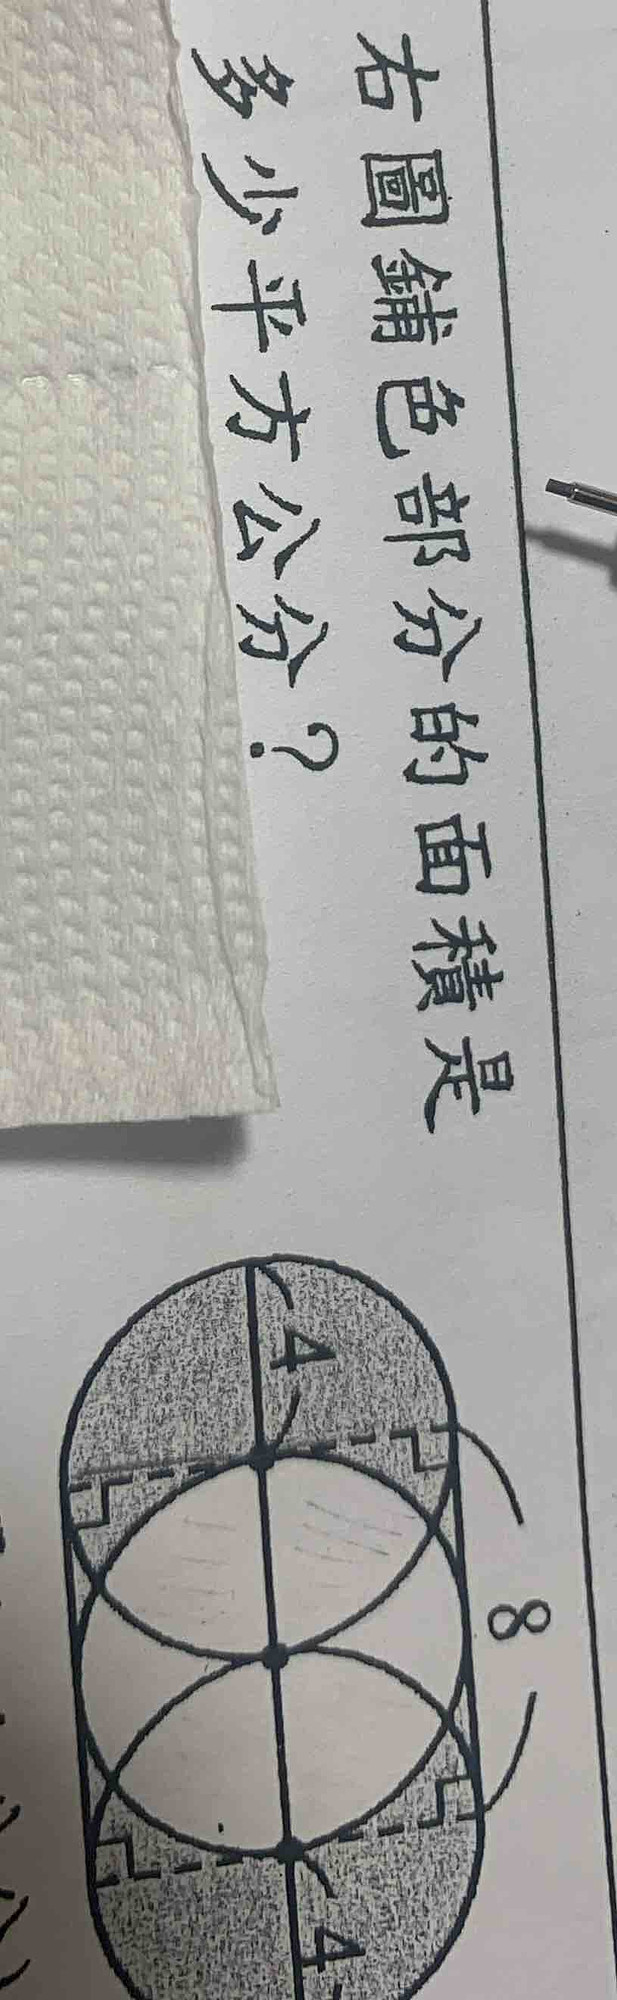 右圖鋪色部分的面積是
多少平方公分？
4
8
4